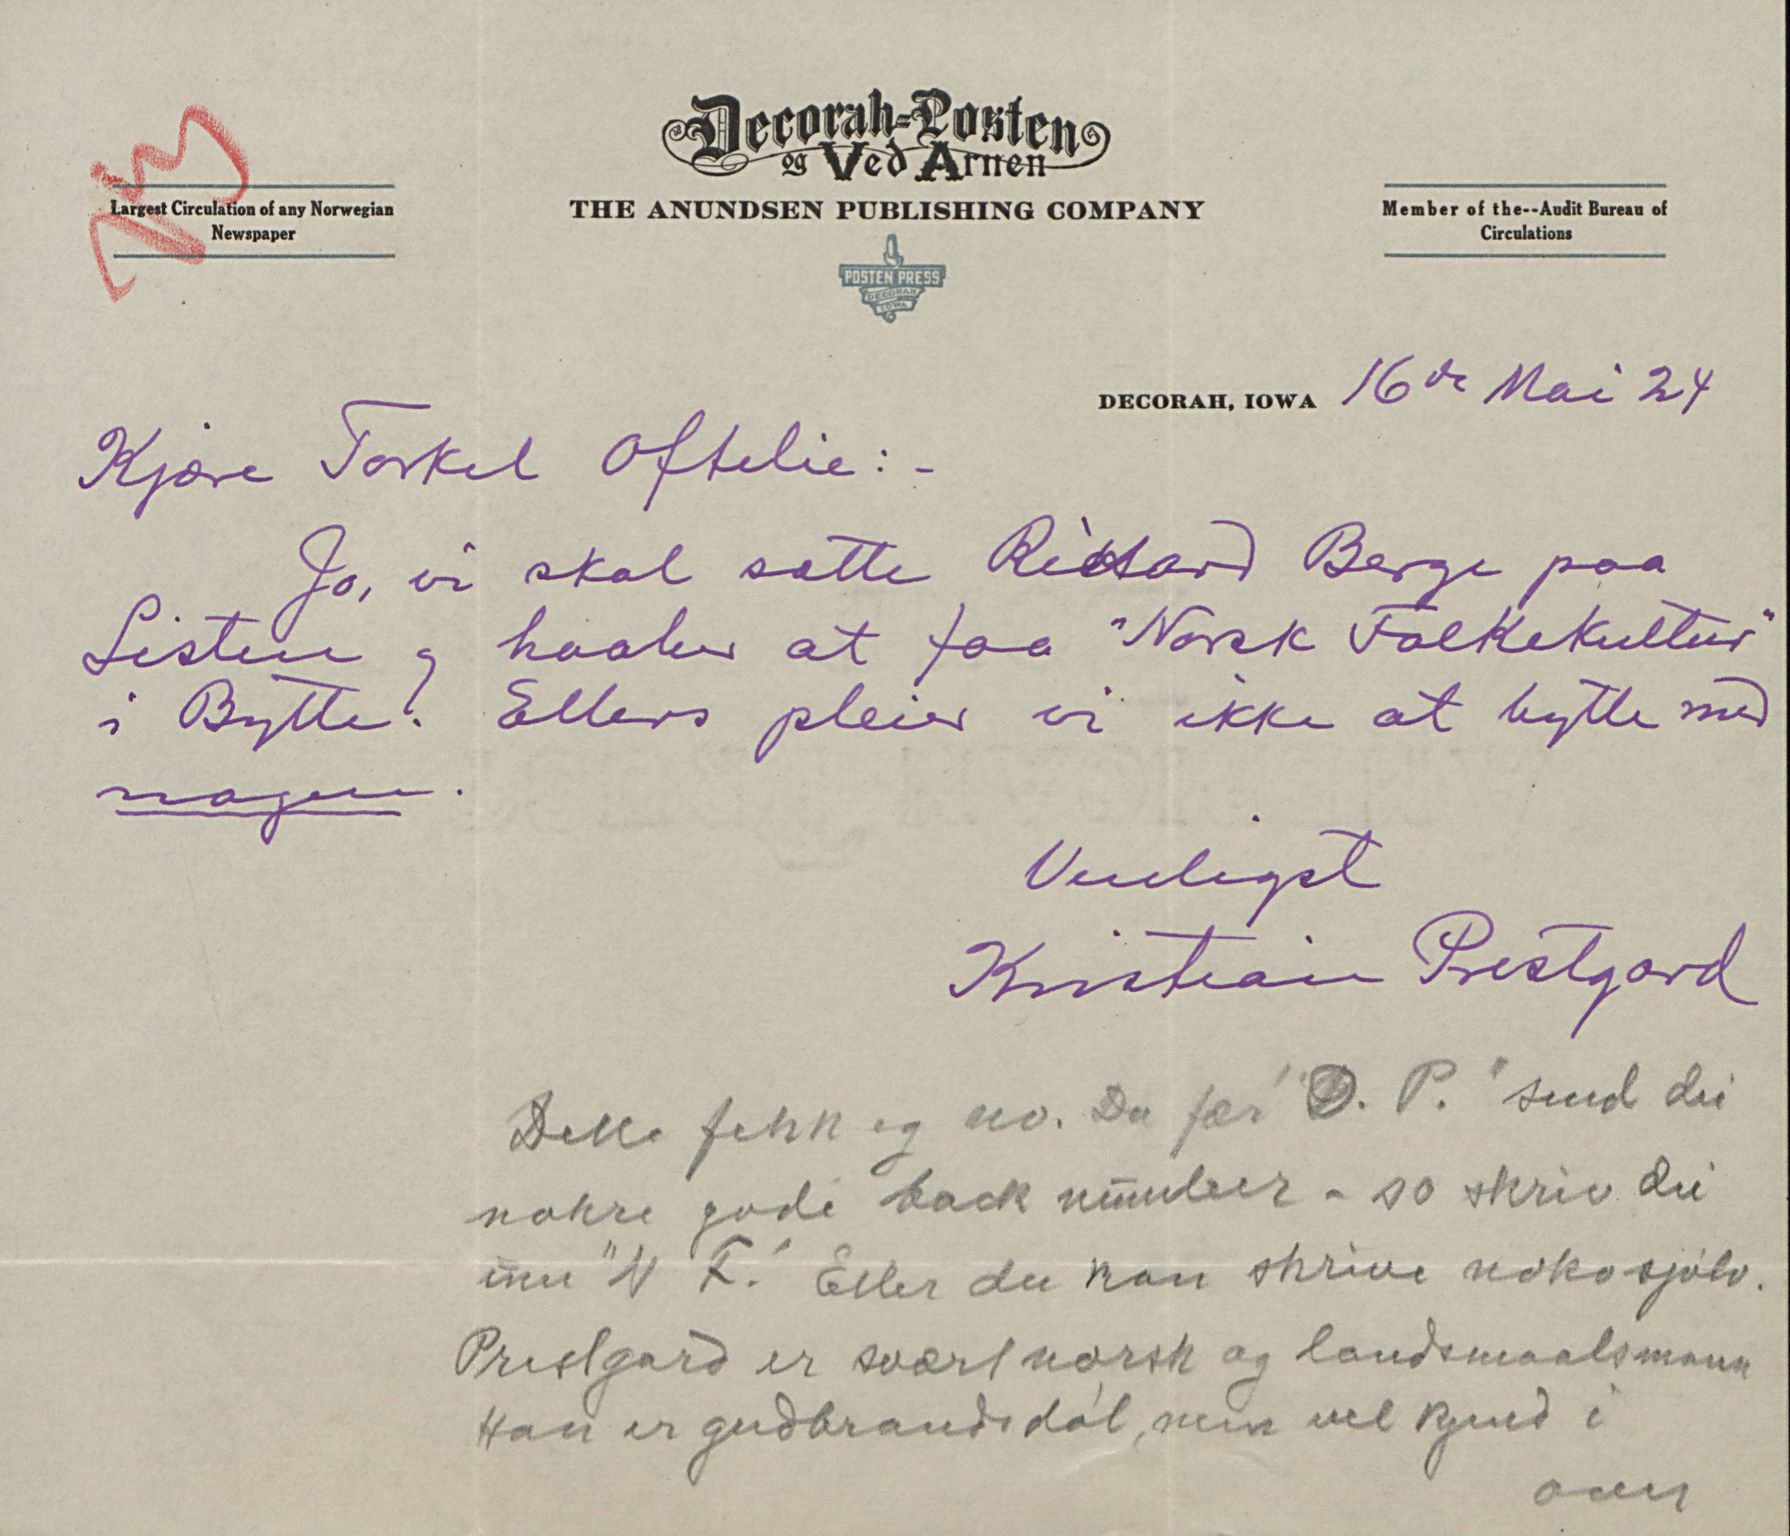 Decorah-Posten
og Ved Arnen
THE ANUNDSEN PUBLISHING COMPANY
Largest Circulation of any Norwegian
Newspaper
Member of the--Audit Bureau of
Circulations
POSTEN PRESS
DECORAH
IOWA
DECORAH, IOWA 16de Mai 24
Kjære Torkel Oftelie:-
Jo, vi skal sætte Rikard Berge paa
Listen og haaber at faa "Norsk Folkekultur"
i Bytte. Ellers pleier vi ikke at bytte med
nogen.
Venligst
Kristian Prestgard
Dette fekk eg no. Du fær "D. P." send dei
nokre gode back number - so skriv dei
um "N F." Eller du kan skrive noko sjølv.
Prestgard er svært norsk og landsmaalsmann
Han er gudbrandsdøl, men vel kjend i
over